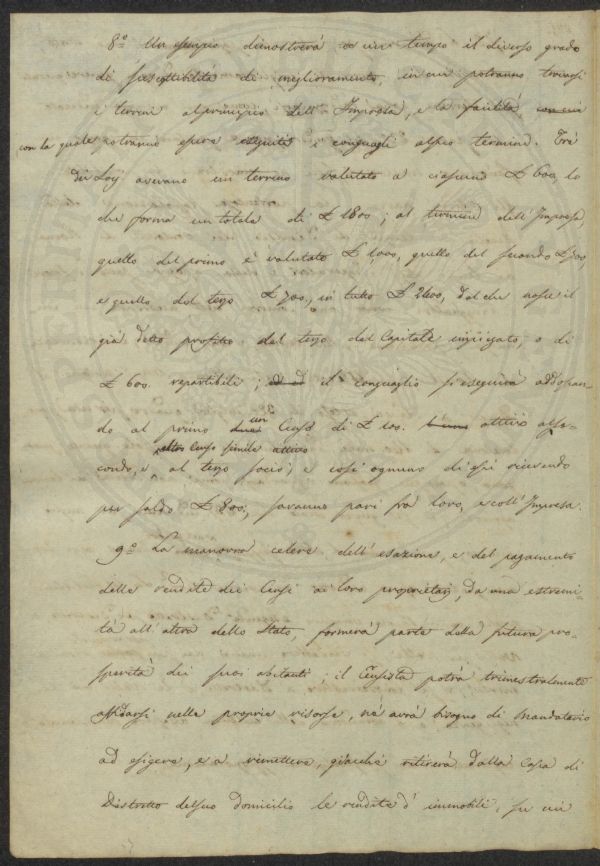 8.º Un esempio dimostrerà in un tempo il diverso grado
di suscettibilità di miglioramento, in cui potranno trovarsi
i terreni al principio dell'Impresa, e la facilità, con cui
con la quale potranno essere eseguiti i conguagli al suo termine. Trè
di Loro avevano un terreno valutato a ciascuno £ 600, lo
che forma un totale di £ 1800; al termine dell'Impresa,
quello del primo è valutato £ 1,000, quello del secondo £ 700,
e quello del terzo £ 700, in tutto £ 2400, dal che nasce il
già detto profitto del terzo del Capitale impiegato, o di
£ 600. repartibili; il conguaglio si eseguirà addossan-
do al primo un Censo di £ 100. attivo al se-
altro Censo simile attivo
condo, e al terzo socio; e così ognuno di essi ricevendo
per saldo £ 800, saranno pari frà loro, e coll'Impresa.
9.º La manovra celere dell'esazione, e del pagamento
delle rendite dei Censi ai loro proprietarj, da una estremi-
tà all'altra dello Stato, formerà parte della futura pro-
sperità dei suoi abitanti; il Censista potrà trimestralmente
affidarsi nelle proprie risorse, nè avrà bisogno di Mandatario
ad esigere, e a rimettere, giacchè ritirerà dalla Cassa di
Distretto del suo Domicilio le rendite d'immobili, su cui